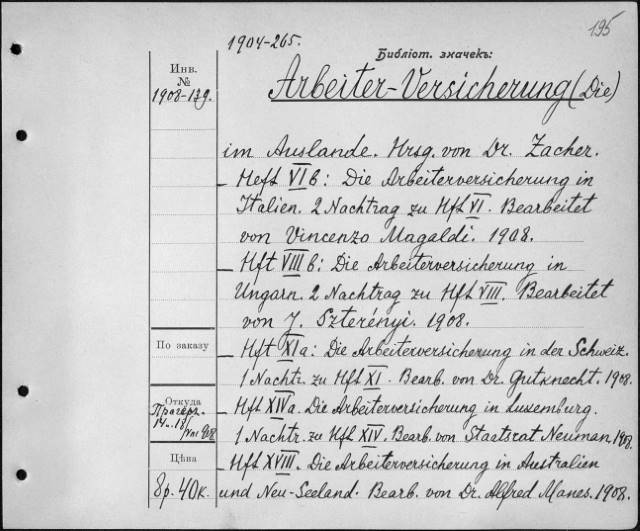 195
1904-265.
Библіот. значекъ:
Инв.
№
1908-139.
Arbeiter-Versicherung (Die)
im Auslande. Hrsg. von Dr. Zacher.
– Heft VI b: Die Arbeiterversicherung in
Italien. 2 Nachtrag zu Hft VI. Bearbeitet
von Vincenzo Magaldi. 1908.
– Hft VIII b: Die Arbeiterversicherung in
Ungarn. 2 Nachtrag zu Hft VIII. Bearbeitet
von J. Szterényi. 1908.
По заказу
– Hft XI a: Die Arbeiterversicherung in der Schweiz.
1 Nachtr. zu Hft XI. Bearb. von Dr. Gutknecht. 1908.
Откуда
– Hft XIV a. Die Arbeiterversicherung in Luxemburg.
1 Nachtr. zu Hft XIV. Bearb. von Staatsrat Neuman. 1908.
Цѣна
8 р. 40 к.
– Hft XVIII. Die Arbeiterversicherung in Australien
und Neu-Seeland. Bearb. von Dr. Alfred Manes. 1908.